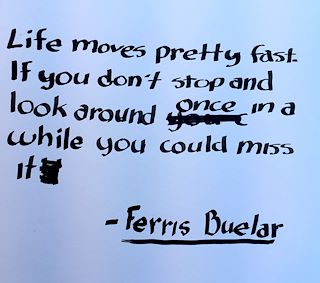 Life moves pretty fast.
If you don't stop and
look around once in a
while you could miss
it
- Ferris Buelar